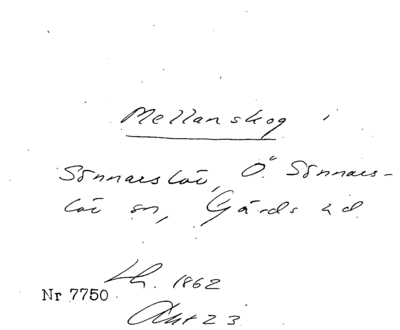 Mellanskog
Sönnarslöv, Ö. Sönnars-
löv sn, Gärds hd
Lh. 1862
Nr 7750
Akt 23